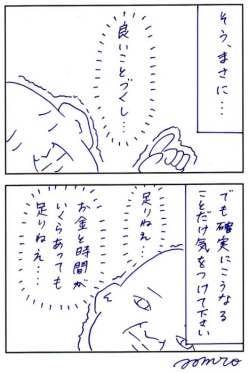 そう、まさに…
良いことづくし…
でも確実にこうなる
ことだけ気をつけて下さい
足りねえ…
お金と時間が
いくらあっても
足りねえ…